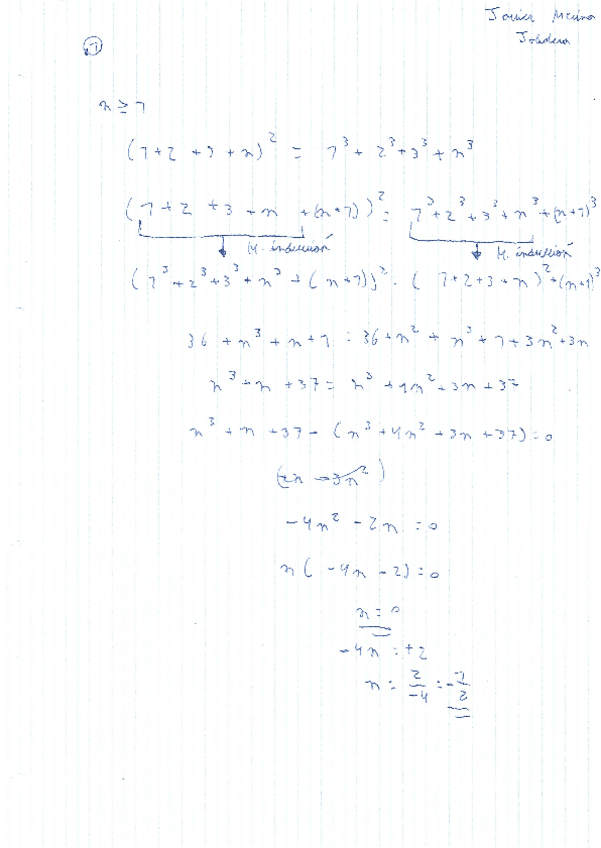 Javier
1
n ≥ 1
(1+2+3+n)² = 1³+2³+3³+n³
(1+2+3+n+(n+1))² = 1³+2³+3³+n³+(n+1)³
H. inducción H. inducción
(1³+2³+3³+n³+(n+1))² = (1+2+3+n)²+(n+1)³
36+n³+n+1 = 36+n²+n³+1+3n²+3n
n³+n+37 = n³+4n²+3n+37
n³+n+37-(n³+4n²+3n+37)=0
-4n²-2n=0
n(-4n-2)=0
n=0
-4n=+2
n= 2/-4 = -1/2